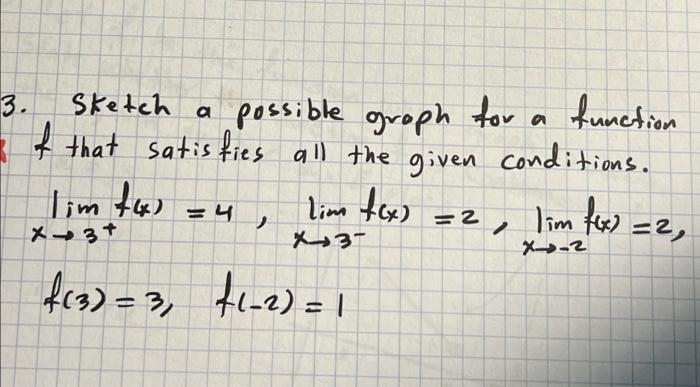 3. Sketch a possible graph for a function
f that satisfies all the given conditions.
lim f(x) = 4 , lim f(x) = 2 , lim f(x) = 2,
x → 3⁺ x → 3⁻ x → -2
f(3) = 3, f(-2) = 1